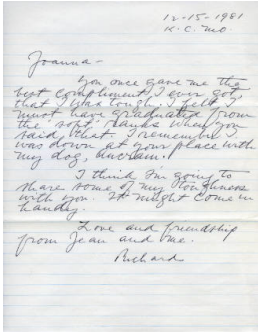 12-15-1981
K.C. Mo
Joanna-
You once gave me the
best compliment I ever got,
that I was tough. I felt I
must have graduated from
the soft ranks when you
said that. I remember I
was down at your place with
my dog, Ancram!
I think I'm going to
share some of my toughness
with you. It might come in
handy.
Love and friendship
from Jean and me.
Richard